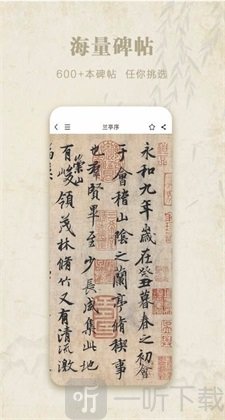 海量碑帖
600+本碑帖 任你挑选
兰亭序
永和九年歲在癸丑暮春之初會
于會稽山陰之蘭亭脩稧事
也羣賢畢至少長咸集此地
有崇山峻領茂林脩竹又有清流激
一听下载